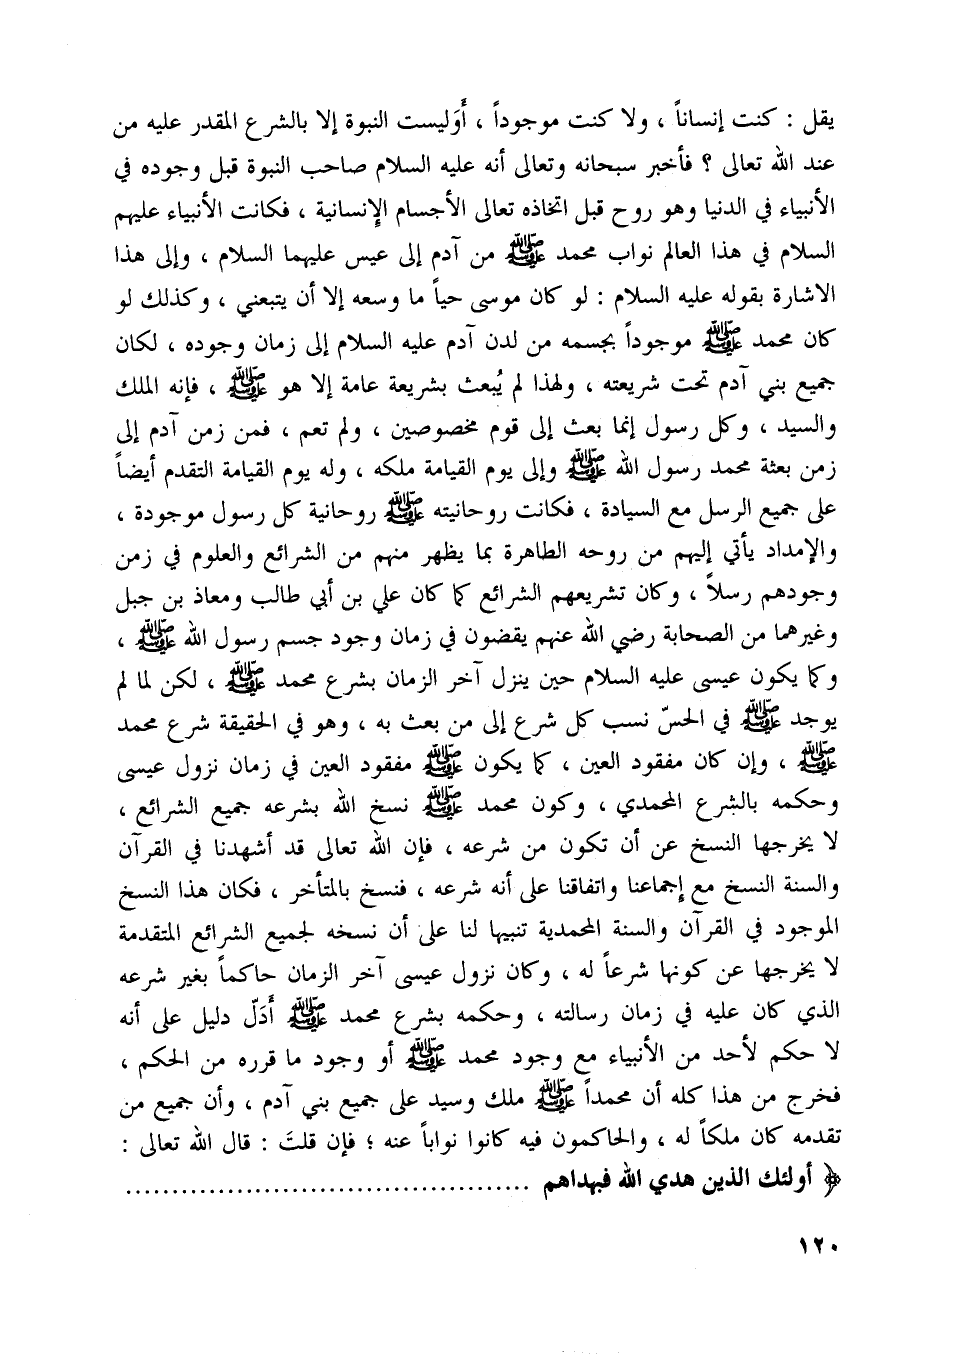 يقل : كنت إنساناً ، ولا كنت موجوداً ، أَوَليست النبوة إلا بالشرع المقدر عليه من
عند الله تعالى ؟ فأخبر سبحانه وتعالى أنه عليه السلام صاحب النبوة قبل وجوده في
الأنبياء في الدنيا وهو روح قبل اتخاذه تعالى الأجسام الإنسانية ، فكانت الأنبياء عليهم
السلام في هذا العالم نواب محمد ﷺ من آدم إلى عيس عليهما السلام ، وإلى هذا
الاشارة بقوله عليه السلام : لو كان موسى حياً ما وسعه إلا أن يتبعني ، وكذلك لو
كان محمد ﷺ موجوداً بجسمه من لدن آدم عليه السلام إلى زمان وجوده ، لكان
جميع بني آدم تحت شريعته ، ولهذا لم يُبعث بشريعة عامة إلا هو ﷺ ، فإنه الملك
والسيد ، وكل رسول إنما بعث إلى قوم مخصوصين ، ولم تعم ، فمن زمن آدم إلى
زمن بعثة محمد رسول الله ﷺ وإلى يوم القيامة ملكه ، وله يوم القيامة التقدم أيضاً
على جميع الرسل مع السيادة ، فكانت روحانيته ﷺ روحانية كل رسول موجودة ،
والإمداد يأتي إليهم من روحه الطاهرة بما يظهر منهم من الشرائع والعلوم في زمن
وجودهم رسلاً ، وكان تشريعهم الشرائع كما كان علي بن أبي طالب ومعاذ بن جبل
وغيرهما من الصحابة رضي الله عنهم يقضون في زمان وجود جسم رسول الله ﷺ ،
وكما يكون عيسى عليه السلام حين ينزل آخر الزمان بشرع محمد ﷺ ، لكن لما لم
يوجد ﷺ في الحسّ نسب كل شرع إلى من بعث به ، وهو في الحقيقة شرع محمد
ﷺ ، وإن كان مفقود العين ، كما يكون ﷺ مفقود العين في زمان نزول عيسى
وحكمه بالشرع المحمدي ، وكون محمد ﷺ نسخ الله بشرعه جميع الشرائع ،
لا يخرجها النسخ عن أن تكون من شرعه ، فإن الله تعالى قد أشهدنا في القرآن
والسنة النسخ مع إجماعنا واتفاقنا على أنه شرعه ، فنسخ بالمتأخر ، فكان هذا النسخ
الموجود في القرآن والسنة المحمدية تنبيها لنا على أن نسخه لجميع الشرائع المتقدمة
لا يخرجها عن كونها شرعاً له ، وكان نزول عيسى آخر الزمان حاكماً بغير شرعه
الذي كان عليه في زمان رسالته ، وحكمه بشرع محمد ﷺ أَدَلّ دليل على أنه
لا حكم لأحد من الأنبياء مع وجود محمد ﷺ أو وجود ما قرره من الحكم ،
فخرج من هذا كله أن محمداً ﷺ ملك وسيد على جميع بني آدم ، وأن جميع من
تقدمه كان ملكاً له ، والحاكمون فيه كانوا نواباً عنه ؛ فإن قلتَ : قال الله تعالى :
﴿ أولئك الذين هدي الله فبهداهم ............................................
١٢٠